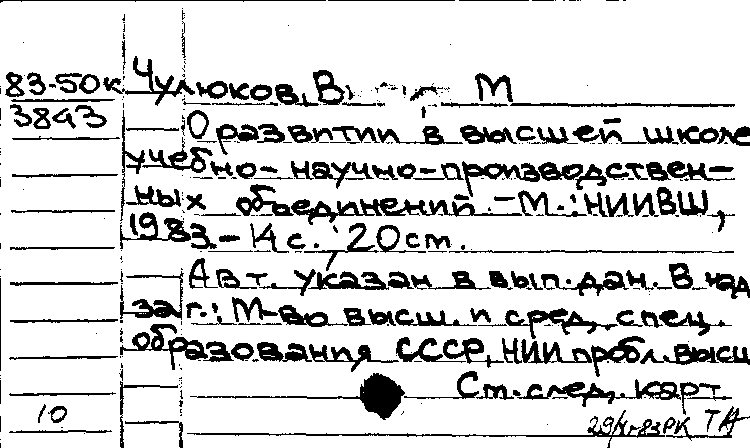 83-50к
3843
Чулюков, В. М
О развитии в высшей школе
учебно-научно-производствен-
ных объединений. - М.: НИИВШ,
1983. - 14 с.; 20 см.
Авт. указан в вып. дан. В над
заг.: М-во высш. и сред. спец.
образования СССР, НИИ пробл. высш
См. след. карт.
10